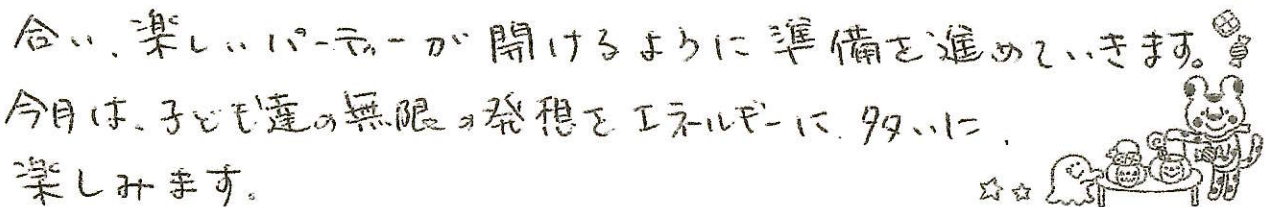 合い、楽しいパーティーが開けるように準備を進めていきます。
今月は、子ども達の無限の発想をエネルギーに、多いに、
楽しみます。